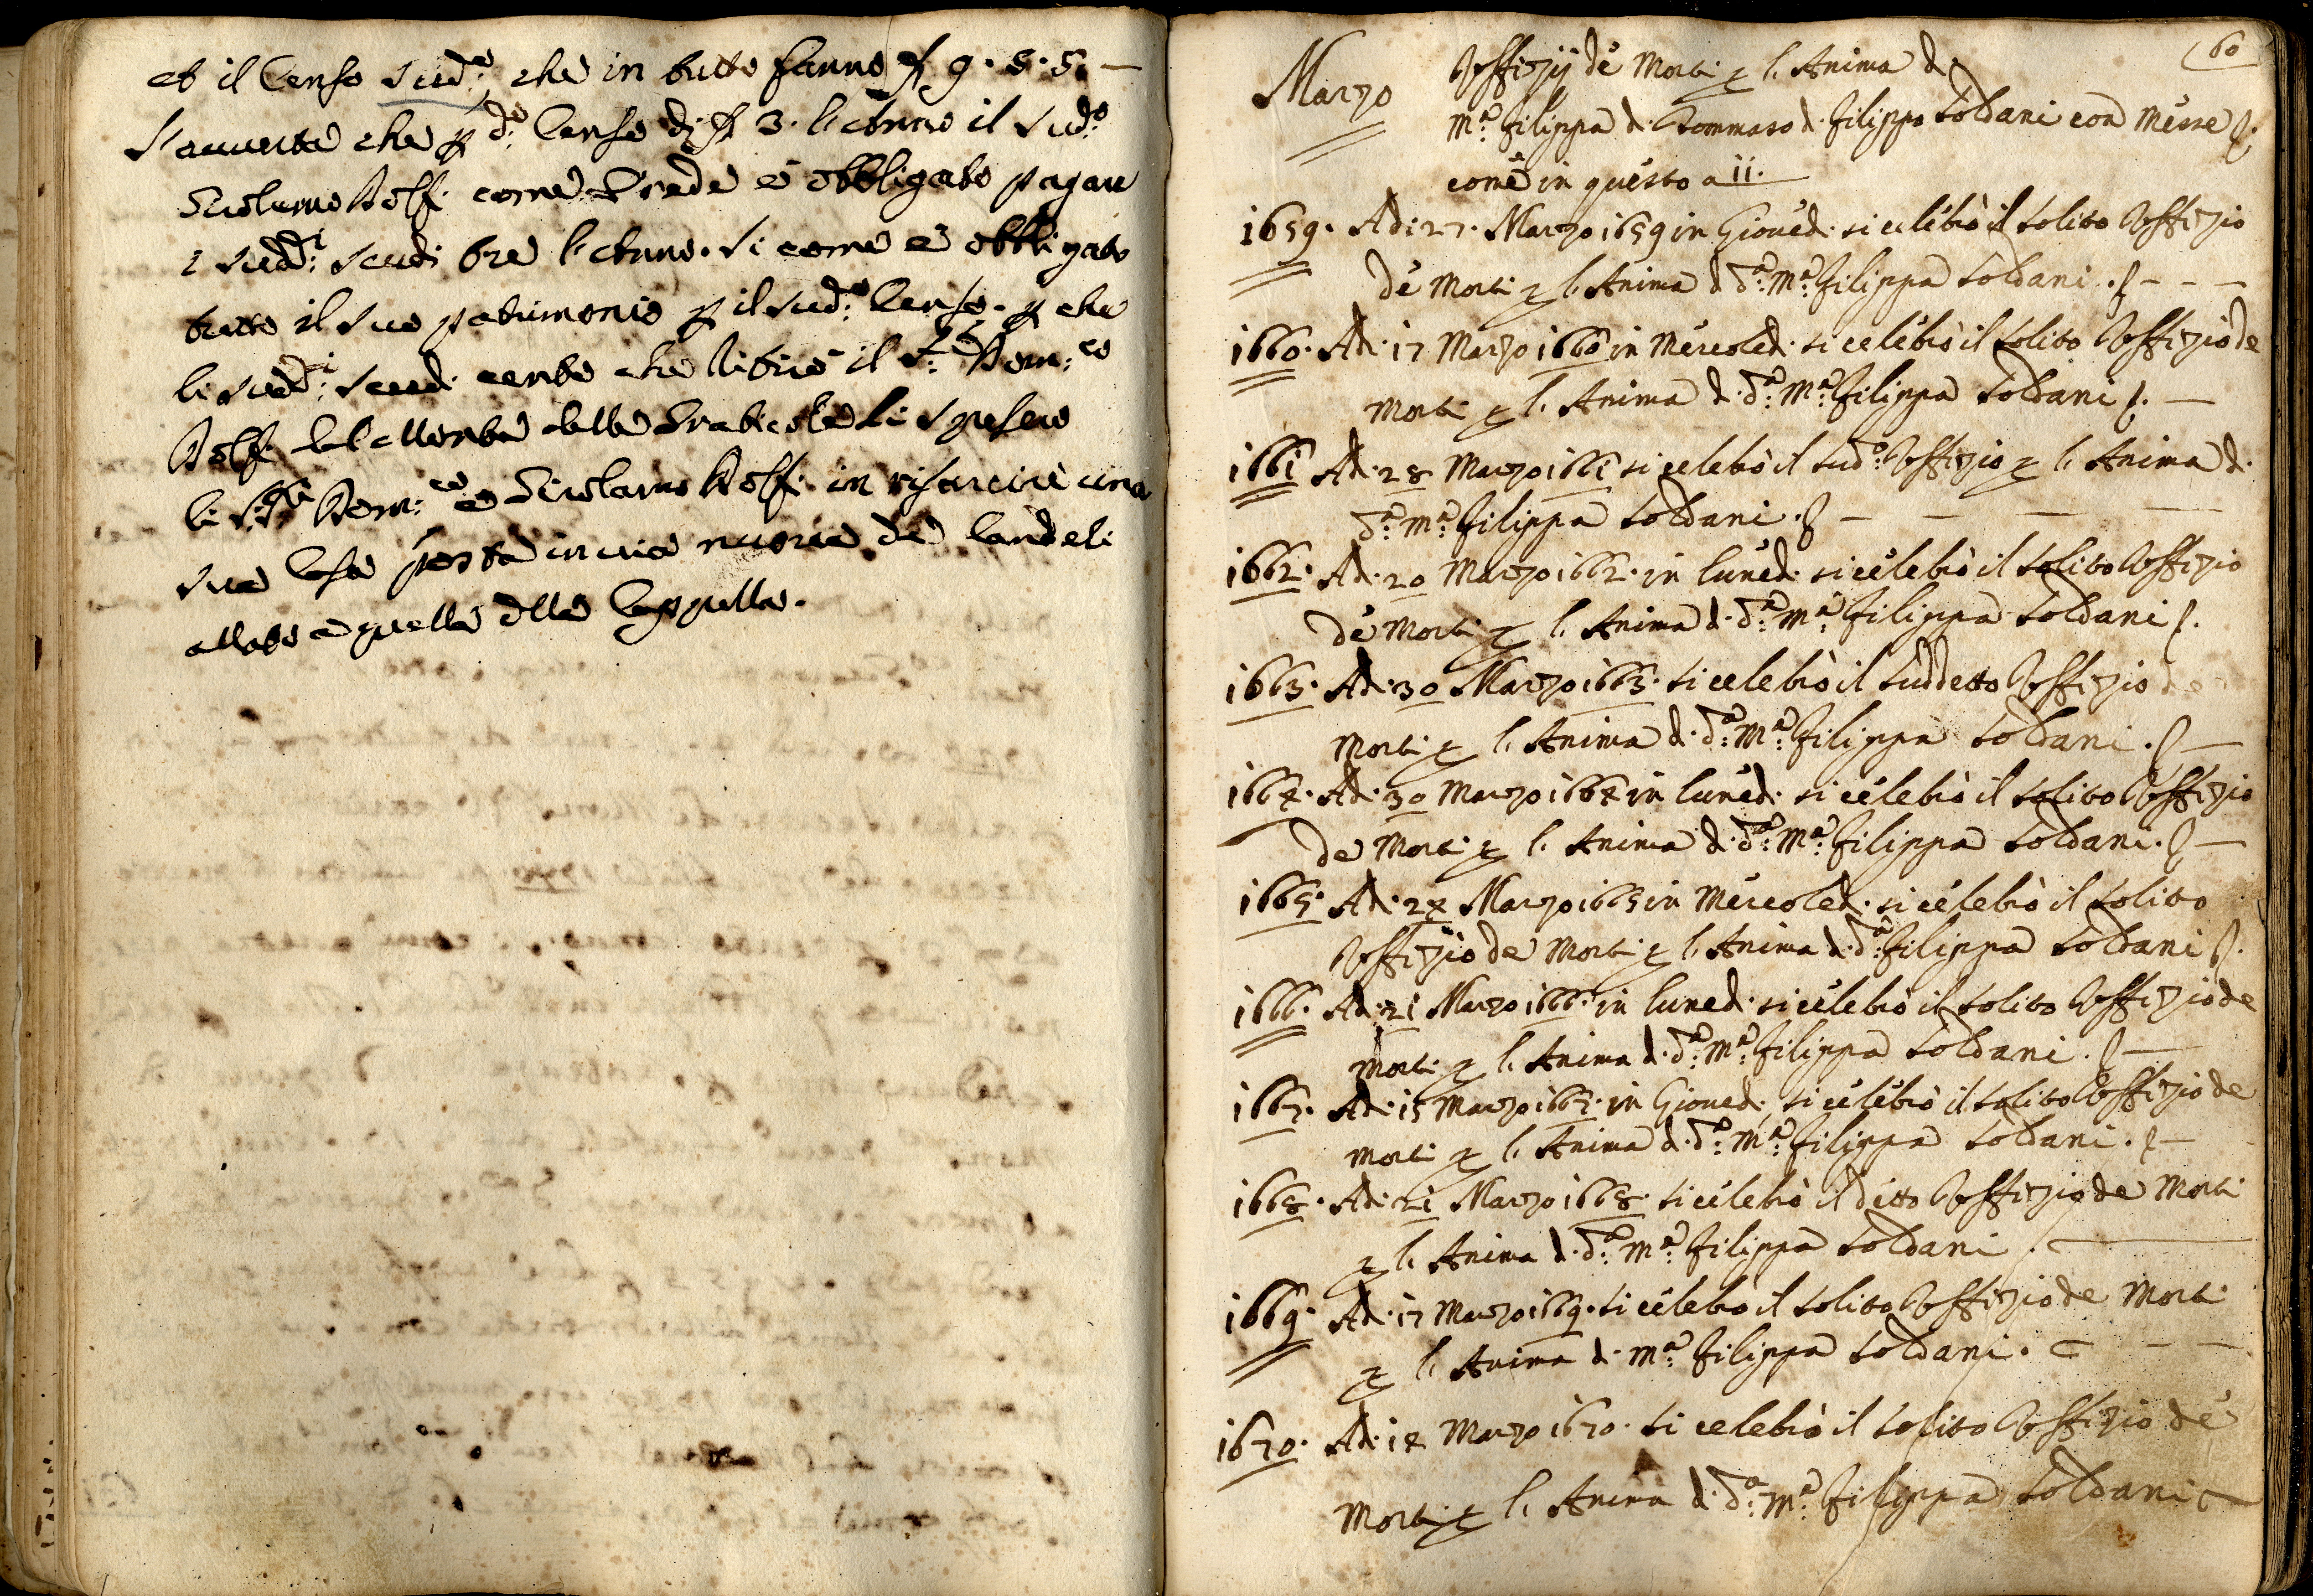 et il Censo sud.º, che in tutto fanno ₰ 9. 5. 5. —
S'avverta che p d.º Censo di ₰ 3. l'anno il sud.º
Girolamo Dolfi come Erede è obbligato pagare
i sudd.i scudi tre l'anno. Si come è obbligato
tutto il suo patrimonio p il sud.º Censo. p che
li sudd.i scudi cento che il S.r Dom.co
Dolfi dal Monte delle Graticole li spesero
li SS.ri Dom.co e Girolamo Dolfi in risarcire una
sua Casa posta in via nuova de Candeli
allato a quella della Cappella.
60
Marzo
Offizij de Morti p l'Anima d.
M.ª Filippa d. Tommaso d. Filippo Soldani con Messe
come in questo a 11.
1659. Adi 27. Marzo 1659 in Giovedi si celebrò il solito Offizio
de Morti p l'Anima d. d.ª M.ª Filippa Soldani. — — —
1660. Adi 17 Marzo 1660 in Mercoledi si celebrò il solito Offizio de
Morti p l'Anima d. d.ª M.ª Filippa Soldani. —
1661 Adi 28 Marzo 1661 si celebrò il sud.º Offizio p l'Anima d.
d.ª M.ª Filippa Soldani. — — — —
1662. Adi 20 Marzo 1662. in lunedi si celebrò il solito Offizio
de Morti p l'Anima d. d.ª M.ª Filippa Soldani.
1663. Adi 30 Marzo 1663. si celebrò il suddetto Offizio de
Morti p l'Anima d. d.ª M.ª Filippa Soldani. —
1664. Adi 30 Marzo 1664 in lunedi si celebrò il solito Offizio
de Morti p l'Anima d. d.ª M.ª Filippa Soldani. —
1665. Adi 24 Marzo 1665 in Mercoledi si celebrò il solito
Offizio de Morti p l'Anima d. d.ª Filippa Soldani.
1666. Adi 21 Marzo 1666. in lunedi si celebrò il solito Offizio de
Morti p l'Anima d. d.ª M.ª Filippa Soldani. —
1667. Adi 15 Marzo 1667. in Giovedi si celebrò il solito Offizio de
Morti p l'Anima d. d.ª M.ª Filippa Soldani. —
1668. Adi 21 Marzo 1668. si celebrò il detto Offizio de Morti
p l'Anima d. d.ª M.ª Filippa Soldani. —
1669. Adi 17 Marzo 1669. si celebrò il solito Offizio de Morti
p l'Anima d. M.ª Filippa Soldani. — —
1670. Adi 14 Marzo 1670. si celebrò il solito Offizio de
Morti p l'Anima d. d.ª M.ª Filippa Soldani